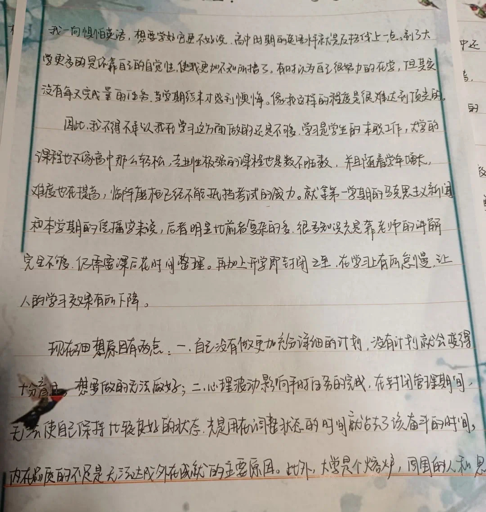 我一向惧怕英语，想要学好它更不好说，高中时期的英语对我就是及格线上一点，到了大
学更多的是依靠自己的自觉性，使我更加不知所措了，有时以为自己很努力的在学，但其实
没有每天完成量的任务，当学期期末才感到懊悔，像我这样的程度是很难达到顶点的。
因此，我不得不承认我在学习这方面做的还是不够，学习是学生的本职工作，大学的
课程也不像高中那么轻松，专业性极强的课程也是数不胜数，并且随着学年增长，
难度也在提高，临阵磨枪已经不能抵挡考试的威力。就拿第一学期的马克思主义新闻
和本学期的传播学来说，后者明显比前者复杂的多，很多知识光是靠老师的讲解
完全不够，还需要课后花时间整理。再加上开学即封闭之至，在学习上有所怠慢，让
人的学习效果有所下降。
现在细想原因有两点：一.自己没有做更加充分详细的计划，没有计划就会变得
十分 想要做的无法做好；二.心理波动影响平时任务的完成，在封闭管理期间，
无法使自己保持比较良好的状态，光是用在调整状态的时间就占去了该奋斗的时间，
内在品质的不足是无法达成外在成就的主要原因。此外，大学是个熔炉，周围的人和